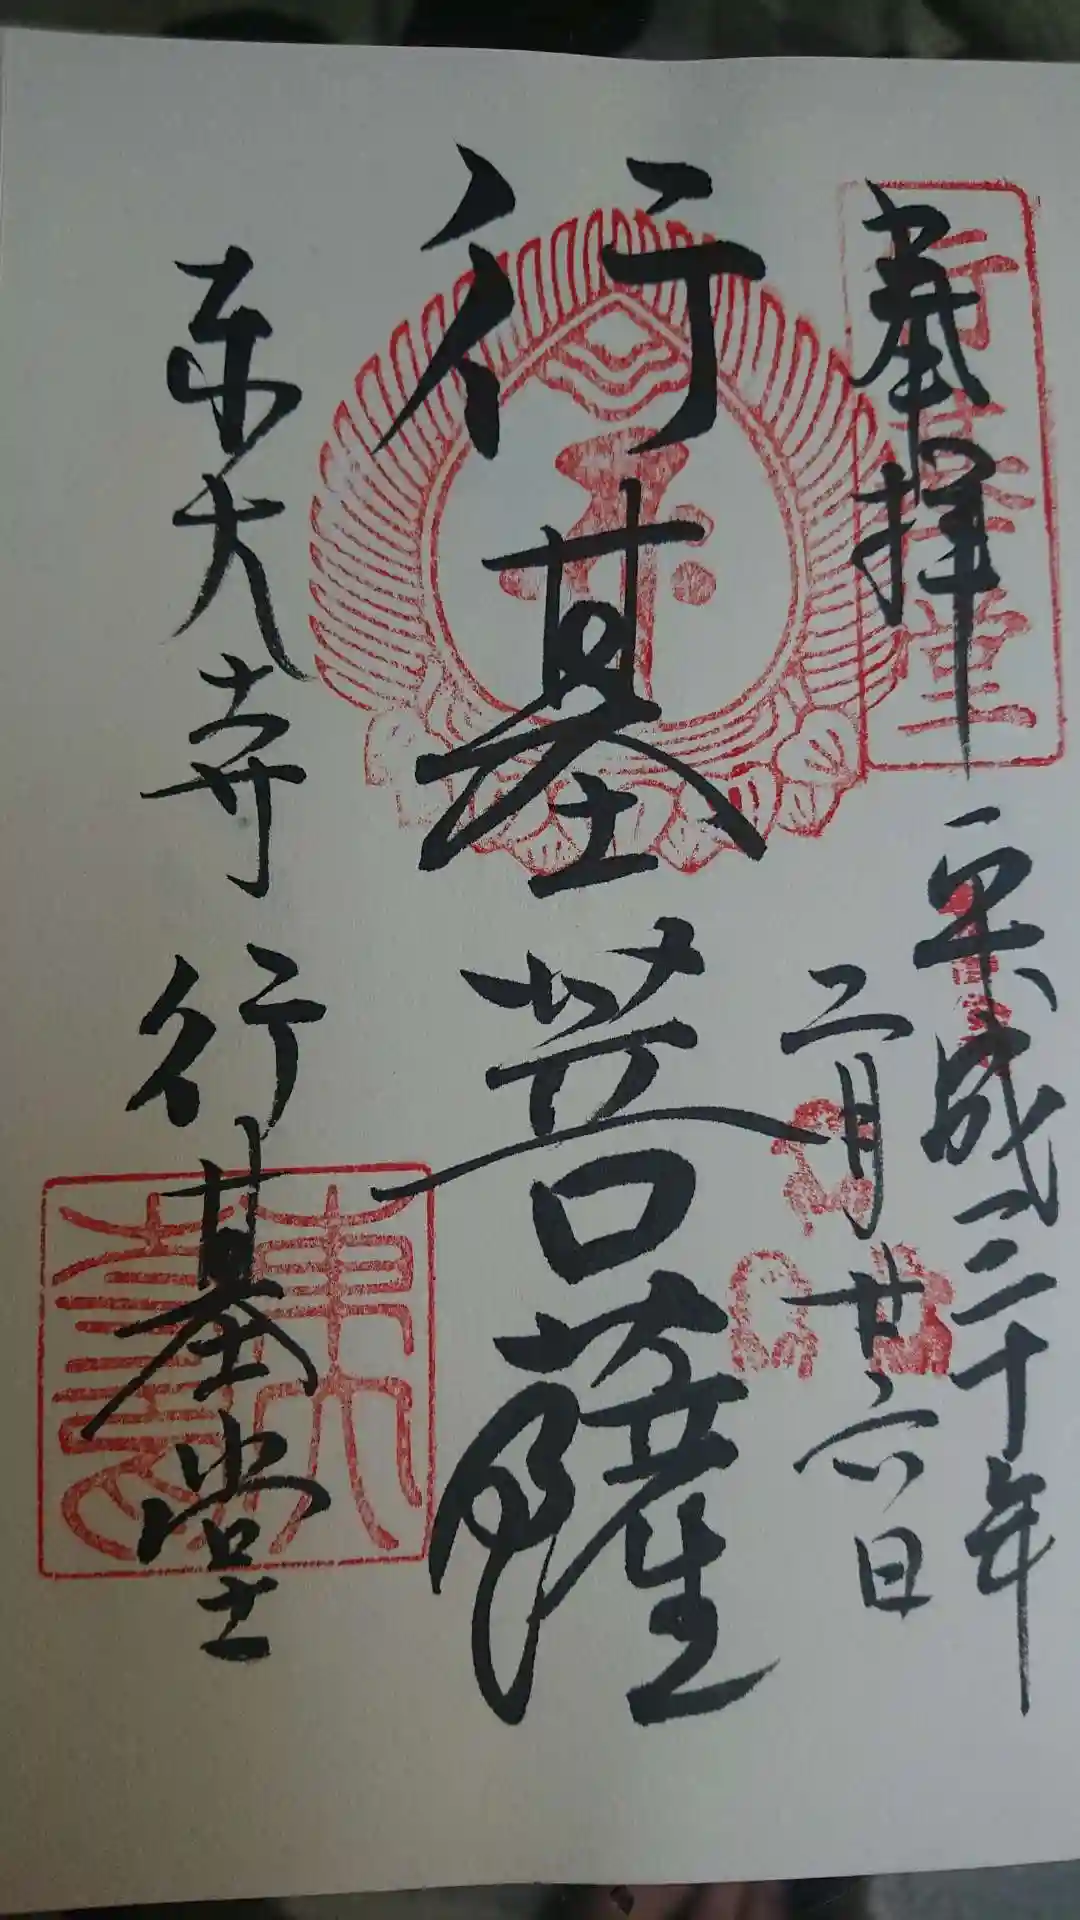 奉拝
平成三十年
二月廿六日
行基菩薩
東大寺 行基堂
行基堂